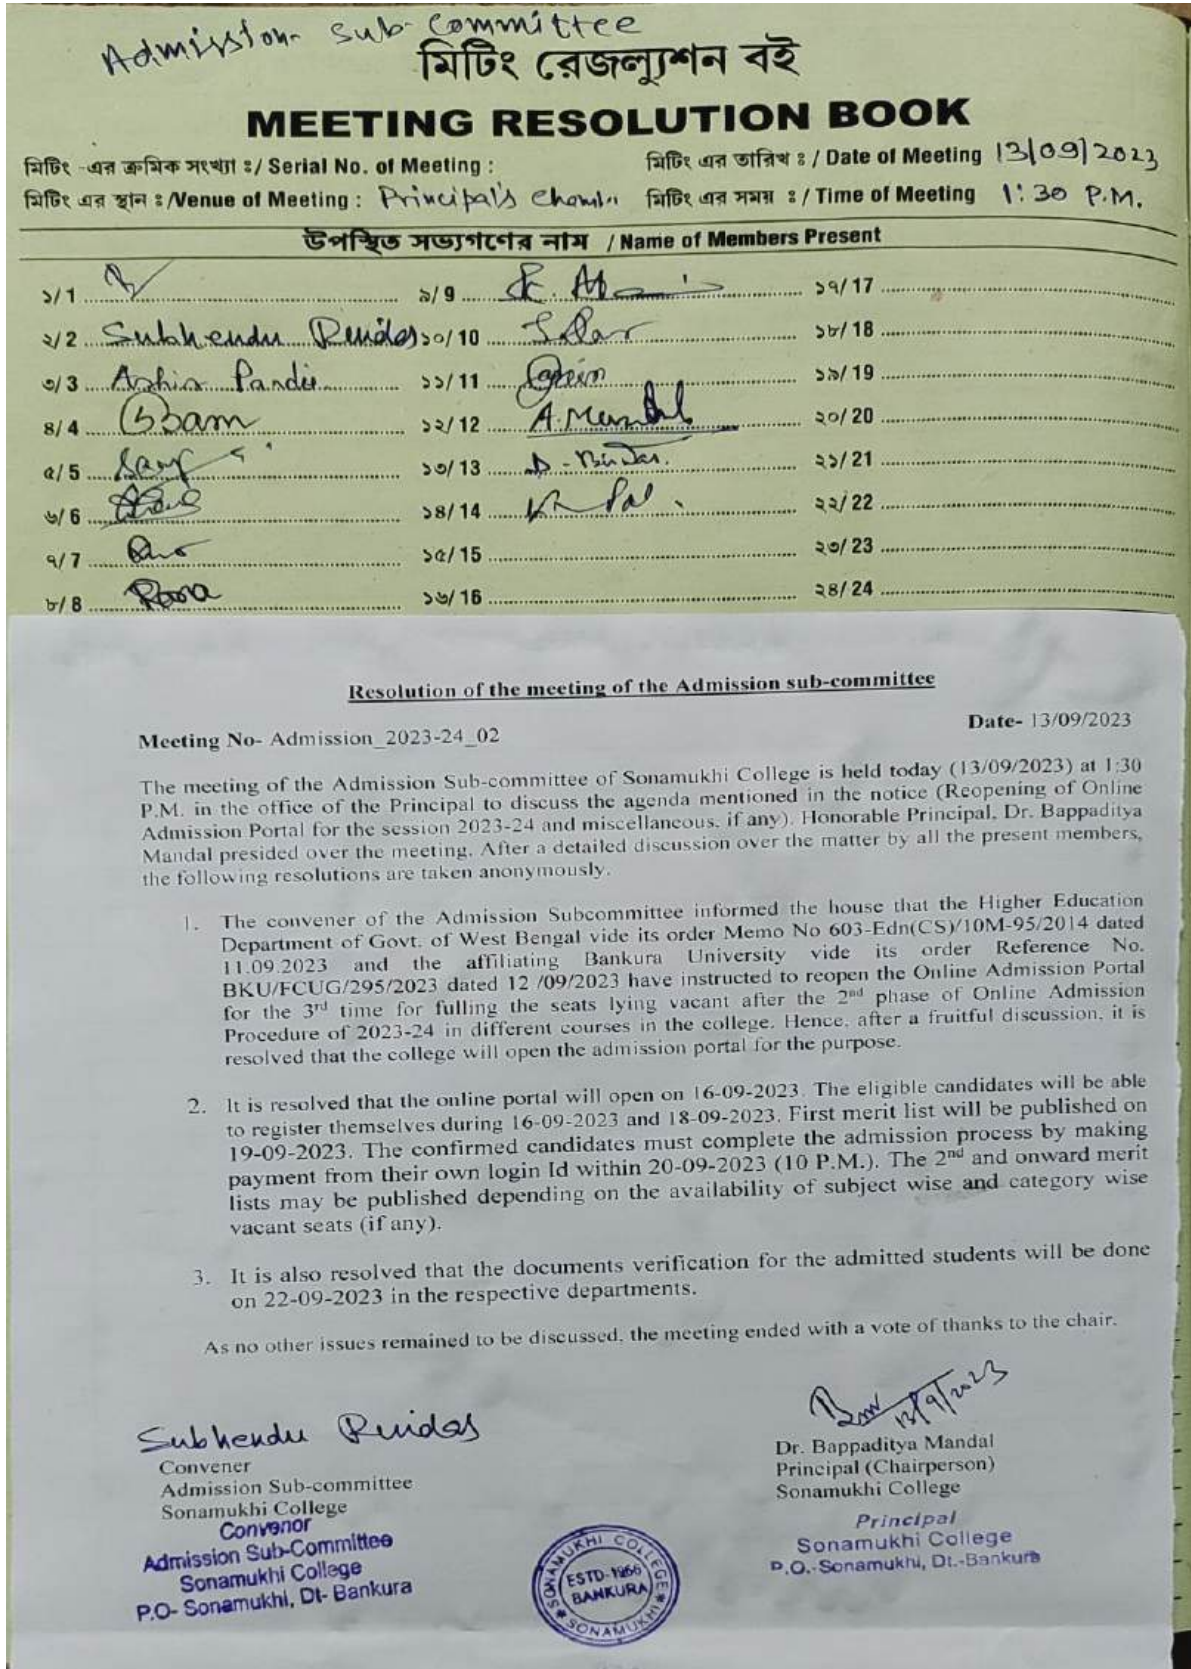 Admission Sub-Committee
মিটিং রেজল্যুশন বই
MEETING RESOLUTION BOOK
মিটিং -এর ক্রমিক সংখ্যা ঃ/ Serial No. of Meeting :
মিটিং এর তারিখ ঃ / Date of Meeting 13/09/2023
মিটিং এর স্থান ঃ/Venue of Meeting : Principal's
মিটিং এর সময় ঃ / Time of Meeting 1:30 P.M.
উপস্থিত সভ্যগণের নাম / Name of Members Present
১/ 1
২/ 2 Subhendu Ruidas
৩/ 3
৪/ 4
৫/ 5
৬/ 6
৭/ 7
৮/ 8
৯/ 9
১০/ 10
১১/ 11
১২/ 12 A. Mandal
১৩/ 13
১৪/ 14 Pal
১৫/ 15
১৬/ 16
১৭/ 17
১৮/ 18
১৯/ 19
২০/ 20
২১/ 21
২২/ 22
২৩/ 23
২৪/ 24
Resolution of the meeting of the Admission sub-committee
Meeting No- Admission_2023-24_02
Date- 13/09/2023
The meeting of the Admission Sub-committee of Sonamukhi College is held today (13/09/2023) at 1:30
P.M. in the office of the Principal to discuss the agenda mentioned in the notice (Reopening of Online
Admission Portal for the session 2023-24 and miscellaneous, if any). Honorable Principal, Dr. Bappaditya
Mandal presided over the meeting. After a detailed discussion over the matter by all the present members,
the following resolutions are taken anonymously.
1. The convener of the Admission Subcommittee informed the house that the Higher Education
Department of Govt. of West Bengal vide its order Memo No 603-Edn(CS)/10M-95/2014 dated
11.09.2023 and the affiliating Bankura University vide its order Reference No.
BKU/FCUG/295/2023 dated 12 /09/2023 have instructed to reopen the Online Admission Portal
for the 3rd time for fulling the seats lying vacant after the 2nd phase of Online Admission
Procedure of 2023-24 in different courses in the college. Hence, after a fruitful discussion, it is
resolved that the college will open the admission portal for the purpose.
2. It is resolved that the online portal will open on 16-09-2023. The eligible candidates will be able
to register themselves during 16-09-2023 and 18-09-2023. First merit list will be published on
19-09-2023. The confirmed candidates must complete the admission process by making
payment from their own login Id within 20-09-2023 (10 P.M.). The 2nd and onward merit
lists may be published depending on the availability of subject wise and category wise
vacant seats (if any).
3. It is also resolved that the documents verification for the admitted students will be done
on 22-09-2023 in the respective departments.
As no other issues remained to be discussed, the meeting ended with a vote of thanks to the chair.
Subhendu Ruidas
Convener
Admission Sub-committee
Sonamukhi College
Convenor
Admission Sub-Committee
Sonamukhi College
P.O- Sonamukhi, Dt- Bankura
SONAMUKHI COLLEGE
ESTD-1966
BANKURA
SONAMUKHI
13/9/2023
Dr. Bappaditya Mandal
Principal (Chairperson)
Sonamukhi College
Principal
Sonamukhi College
P.O.-Sonamukhi, Dt.-Bankura